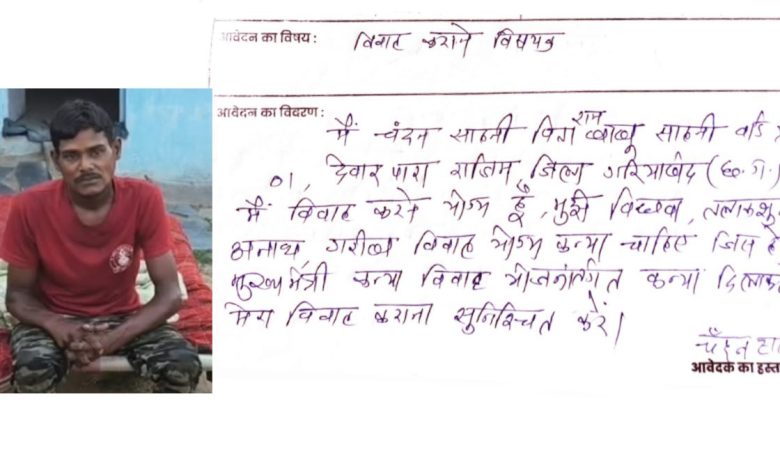 आवेदन का विषय : विवाह कराने विषयक
आवेदन का विवरण :
राम
मैं चंदन साहनी पिता बाबू साहनी वार्ड
01, देवार पारा राजिम, जिला गरियाबंद (छ. ग.)
मैं विवाह करने योग्य हूँ, मुझे विधवा, तलाकशु
अनाथ, गरीब विवाह योग्य कन्या चाहिए जिस हे
मुख्यमंत्री कन्या विवाह योजनांर्तगत कन्या दिलाक
मेरा विवाह कराना सुनिश्चित करें।
चंदन सा
आवेदक का हस्ता